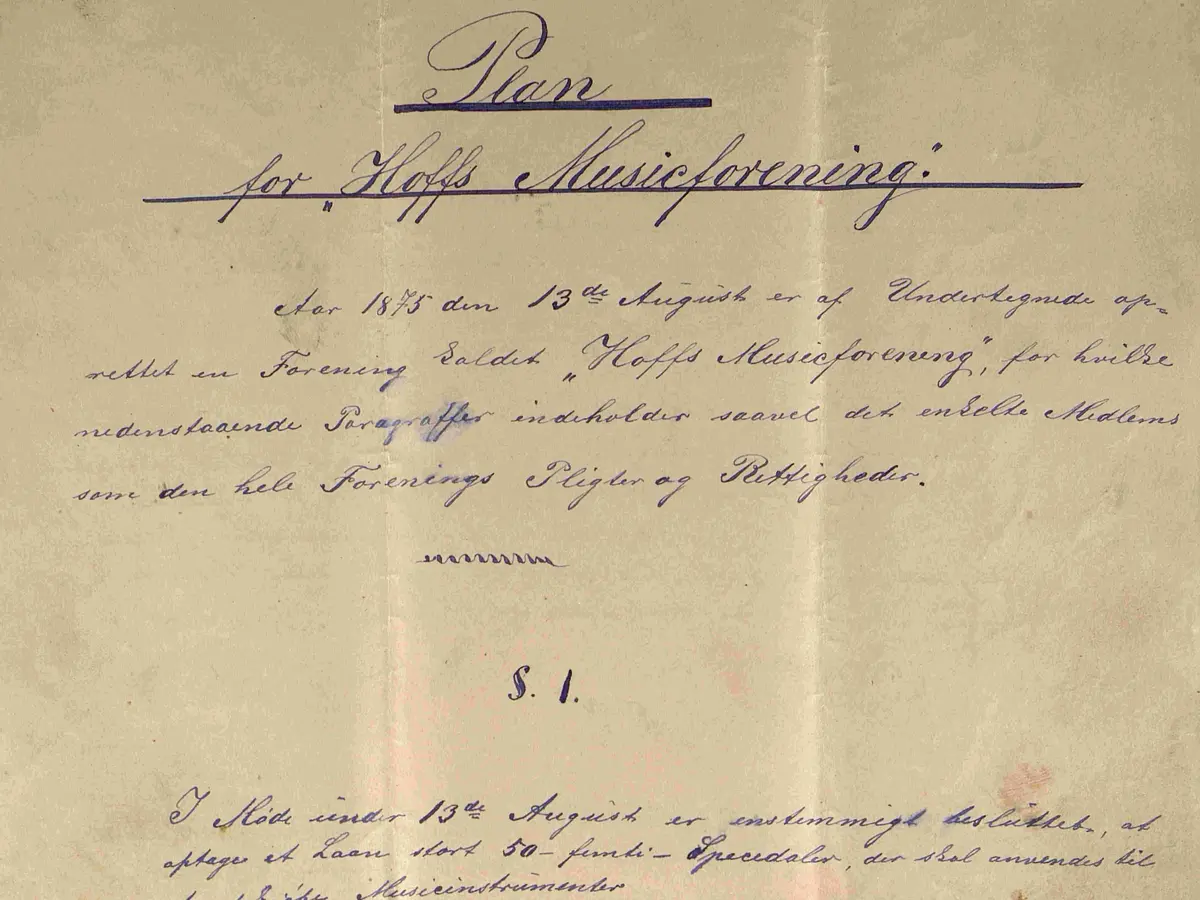 Plan
for „Hoffs Musicforening".
Aar 1875 den 13de August er af Undertegnede op=
rettet en Forening kaldet „Hoffs Musicforening", for hvilke
nedenstaaende Paragraffer indeholder saavel det enkelte Medlems
som den hele Forenings Pligter og Rettigheder.
§. 1.
I Møde under 13de August er enstemmigt besluttet, at
optage et Laan stort 50 - femti - Specedaler, der skal anvendes til
Musicinstrumenter